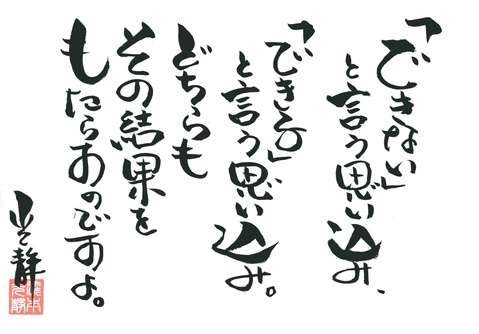 「できない」
と言う思い込み、
「できる」、
と言う思い込み。
どちらも
その結果を
もたらすのですよ。